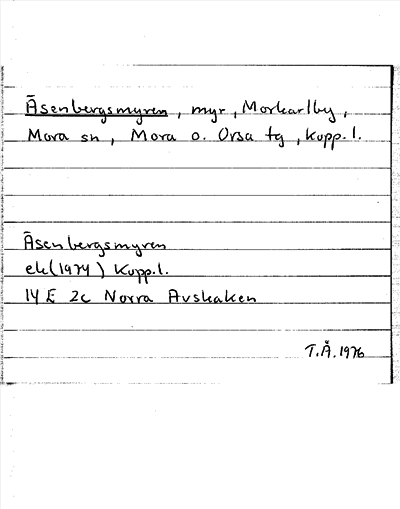 Åsenbergsmyren, myr, Morkarlby,
Mora sn, Mora o. Orsa tg, Kopp. l.
Åsenbergsmyren
ek (1974) Kopp. l.
14 E 2c Norra Avskaken
T.Å. 1976